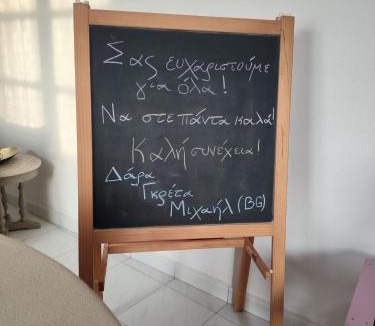 Σας ευχαριστούμε
για όλα!
Να στε πάντα καλά!
Καλή συνεχεια!
Δάρα
Γκρέτα
Μιχαήλ (BG)